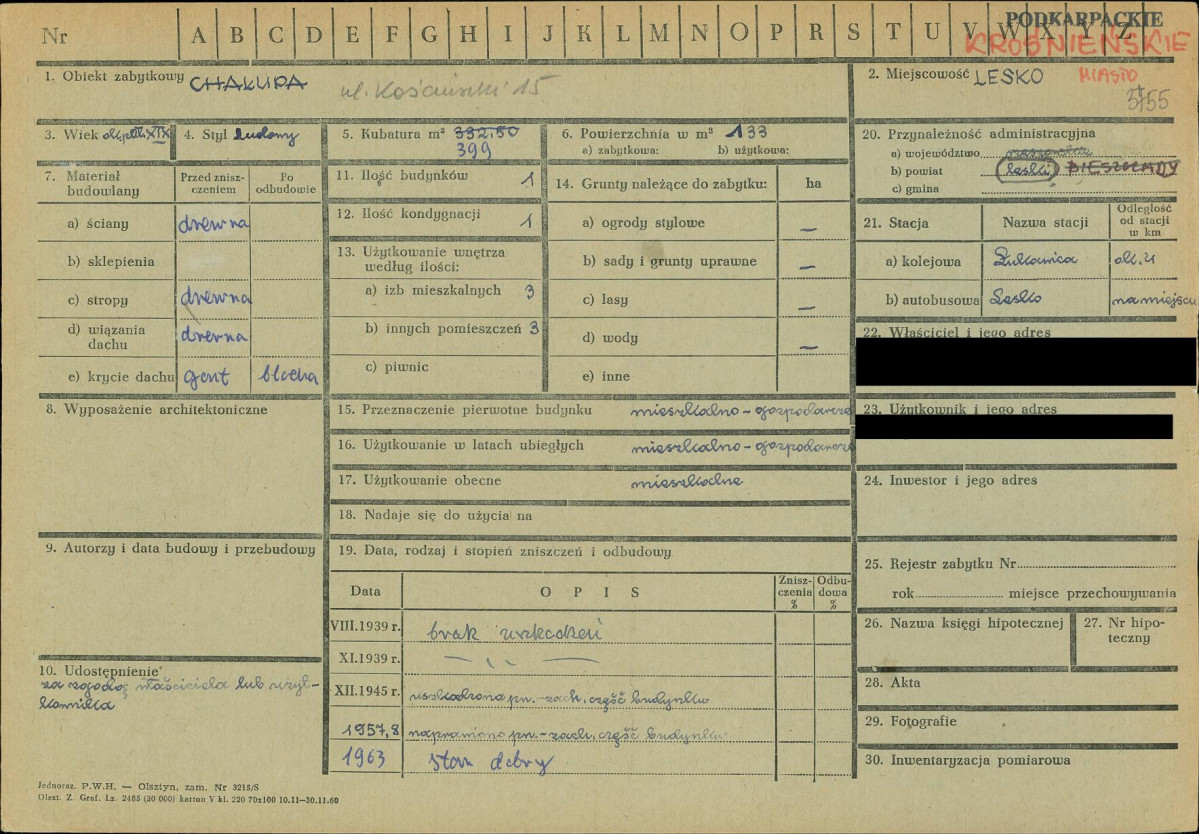 Nr A B C D E F G H I J K L M N O P R S T U V W X Y Z
PODKARPACKIE
KROŚNIEŃSKIE
1. Obiekt zabytkowy CHAŁUPA ul. Kościuszki 15
2. Miejscowość LESKO MIASTO
3755
3. Wiek XIX
4. Styl ludowy
5. Kubatura m³ 332,50
399
6. Powierzchnia w m² 133
a) zabytkowa: b) użytkowa:
7. Materiał budowlany
Przed zniszczeniem
Po odbudowie
a) ściany drewno
b) sklepienia
c) stropy drewno
d) wiązania dachu drewno
e) krycie dachu gont blacha
8. Wyposażenie architektoniczne
9. Autorzy i data budowy i przebudowy
10. Udostępnienie
za zgodą właściciela lub użyt-
kownika
11. Ilość budynków 1
12. Ilość kondygnacji 1
13. Użytkowanie wnętrza
według ilości:
a) izb mieszkalnych 3
b) innych pomieszczeń 3
c) piwnic
14. Grunty należące do zabytku: ha
a) ogrody stylowe —
b) sady i grunty uprawne —
c) lasy —
d) wody —
e) inne
15. Przeznaczenie pierwotne budynku mieszkalno-gospodarcze
16. Użytkowanie w latach ubiegłych mieszkalno-gospodarcze
17. Użytkowanie obecne mieszkalne
18. Nadaje się do użycia na
19. Data, rodzaj i stopień zniszczeń i odbudowy
Data O P I S Zniszczenia % Odbudowa %
VIII.1939 r. brak uszkodzeń
XI.1939 r. — ,, —
XII.1945 r. uszkodzona pn.-zach. część budynku
1957,8 naprawiono pn.-zach. część budynku
1963 stan dobry
20. Przynależność administracyjna
a) województwo
b) powiat leski BIESZCZADY
c) gmina
21. Stacja Nazwa stacji Odległość od stacji w km
a) kolejowa Łukawica ok. 4
b) autobusowa Lesko na miejscu
22. Właściciel i jego adres
23. Użytkownik i jego adres
24. Inwestor i jego adres
25. Rejestr zabytku Nr
rok miejsce przechowywania
26. Nazwa księgi hipotecznej
27. Nr hipoteczny
28. Akta
29. Fotografie
30. Inwentaryzacja pomiarowa
Jednoraz. P.W.H. — Olsztyn, zam. Nr 3215/S
Olszt. Z. Graf. Lz. 2485 (30 000) karton V kl. 220 70x100 10.11—30.11.60